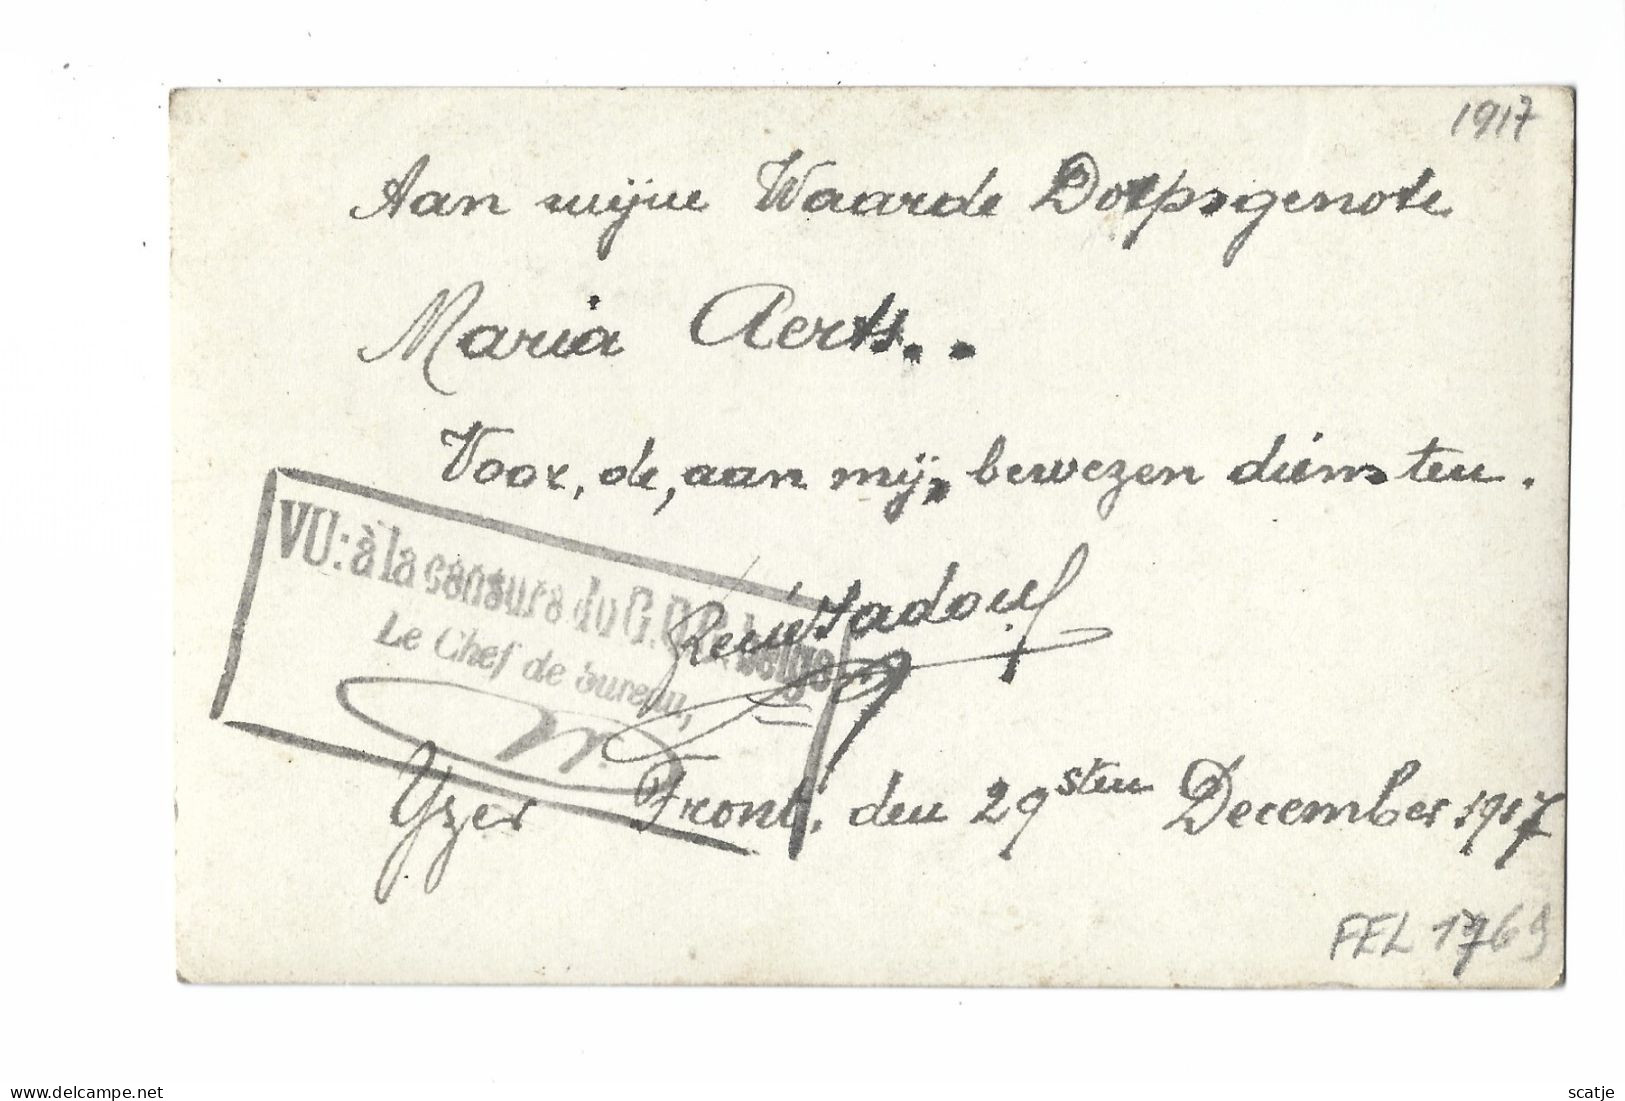 1917
Aan mijne Waarde Dorpsgenote
Maria Aerts..
Voor, de, aan mij, bewezen diensten.
VU: à la censure du G.Q.G. belge
Le Chef de Bureau,
René
Yzer Front, den 29sten December 1917
FEL 1769
scatje